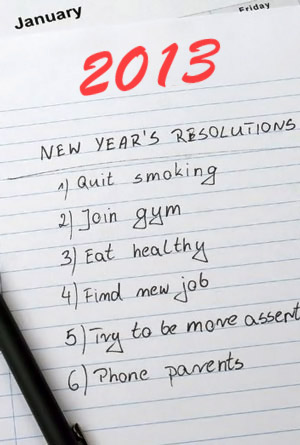 January
Friday
2013
NEW YEAR'S RESOLUTIONS
1) Quit smoking
2) Join gym
3) Eat healthy
4) Find new job
5) Try to be more assert
6) Phone parents